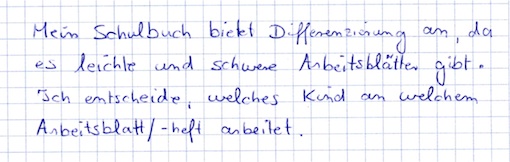 Mein Schulbuch bietet Differenzierung an, da
es leichte und schwere Arbeitsblätter gibt.
Ich entscheide, welches Kind an welchem
Arbeitsblatt/-heft arbeitet.